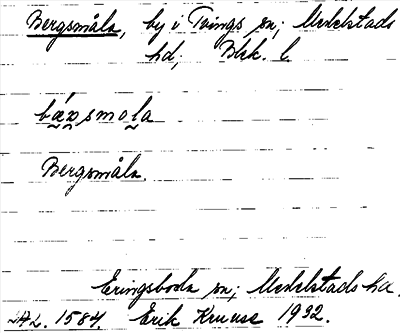 Bergsmåla, by i Tvings sn; Medelstads
hd; Blek. l.
Bergsmåla.
Eringsboda sn; Medelstads hd.
L. 1584. Erik Kruuse 1932.